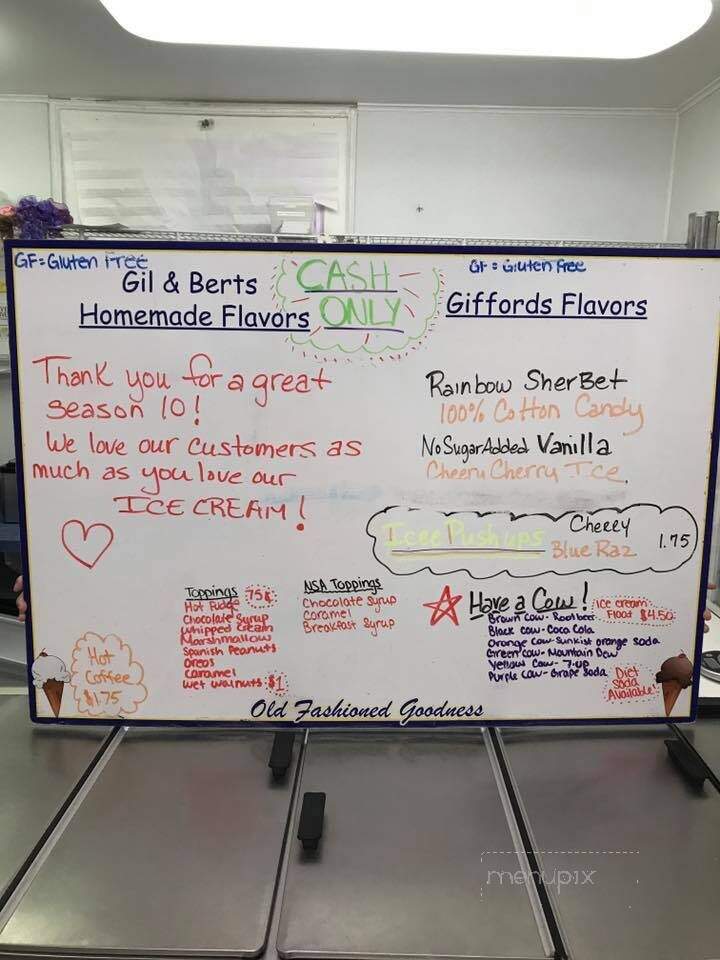 GF=Gluten Free
Gil & Berts
Homemade Flavors
CASH
ONLY
GF=Gluten Free
Giffords Flavors
Thank you for a great
season 10!
We love our customers as
much as you love our
ICE CREAM!
Rainbow SherBet
100% Cotton Candy
No Sugar Added Vanilla
Cheery Cherry Ice
Icee Push ups
Cherry
Blue Raz
1.75
Toppings 75¢
Hot Fudge
Chocolate Syrup
Whipped Cream
Marshmallow
Spanish Peanuts
Oreos
Caramel
Wet walnuts $1
NSA Toppings
Chocolate Syrup
Caramel
Breakfast Syrup
Have a Cow!
Ice cream
Float $4.50
Brown Cow - Rootbeer
Black Cow - Coca Cola
Orange Cow - Sunkist orange soda
Green Cow - Mountain Dew
Yellow Cow - 7-up
Purple Cow - Grape Soda
Diet
Soda
Available!
Hot
Coffee
$1.75
Old Fashioned Goodness
menupix